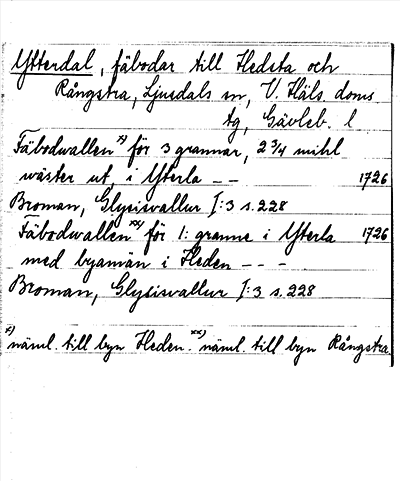 Ytterdal, fäbodar till Hedsta och
Rångstra, Ljusdals sn, V. Häls. doms
tg, Gävleb. l
Fäbodwallen x) för 3 grannar, 2 3/4 mihl
wäster ut i Yterla – – 1726
Broman, Glysisvallur I:3 s. 228
Fäbodwallen xx) för 1: granne i Yterla 1726
med byamän i Heden – – –
Broman, Glysisvallur I:3 s. 228
x) näml. till byn Heden. xx) näml. till byn Rångstra